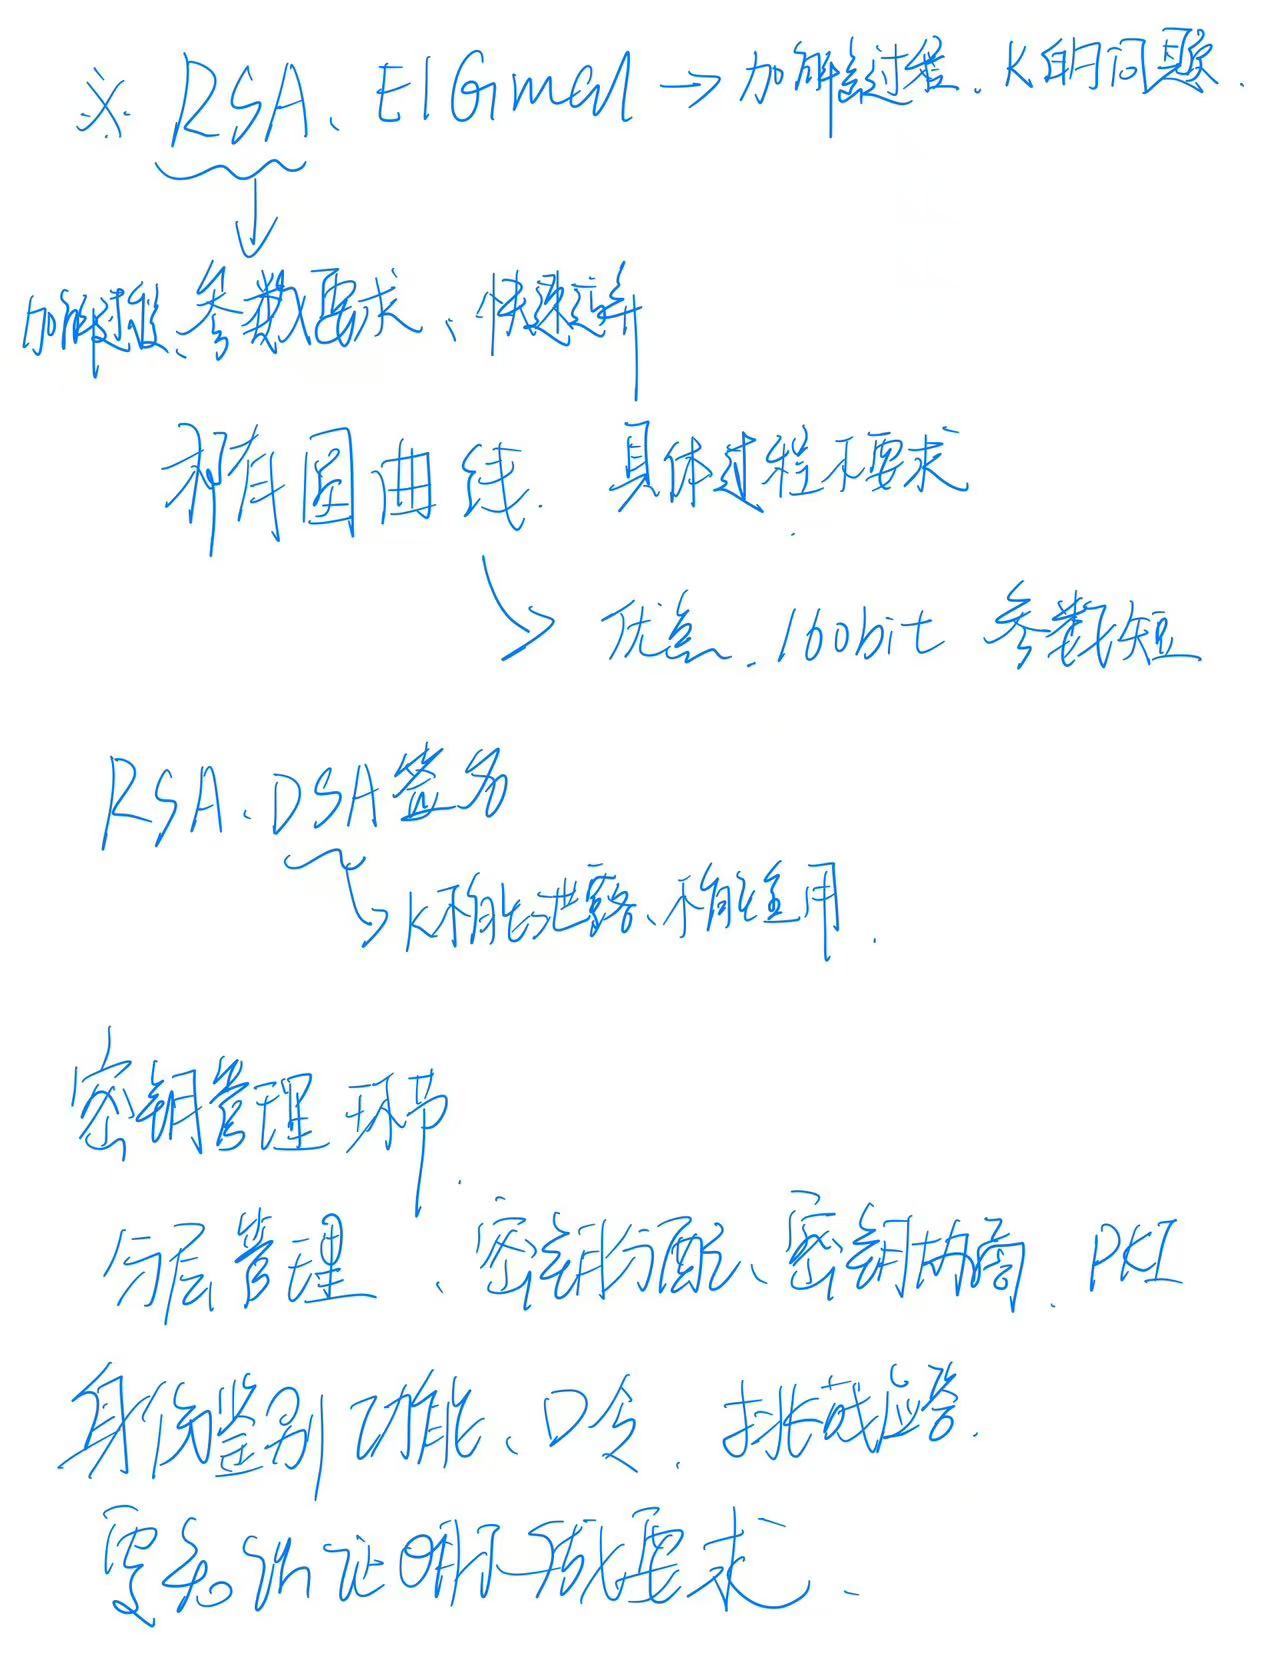 ※ RSA、ElGmal → 加解密过程、K的问题.
加解过程、参数要求、快速运算
椭圆曲线. 具体过程不要求
优点、160bit 参数短
RSA、DSA签名
K不能泄露、不能重用.
密钥管理环节.
分层管理、密钥分配、密钥协商、PKI
身份鉴别功能、口令、挑战应答.
零知识证明不做要求、